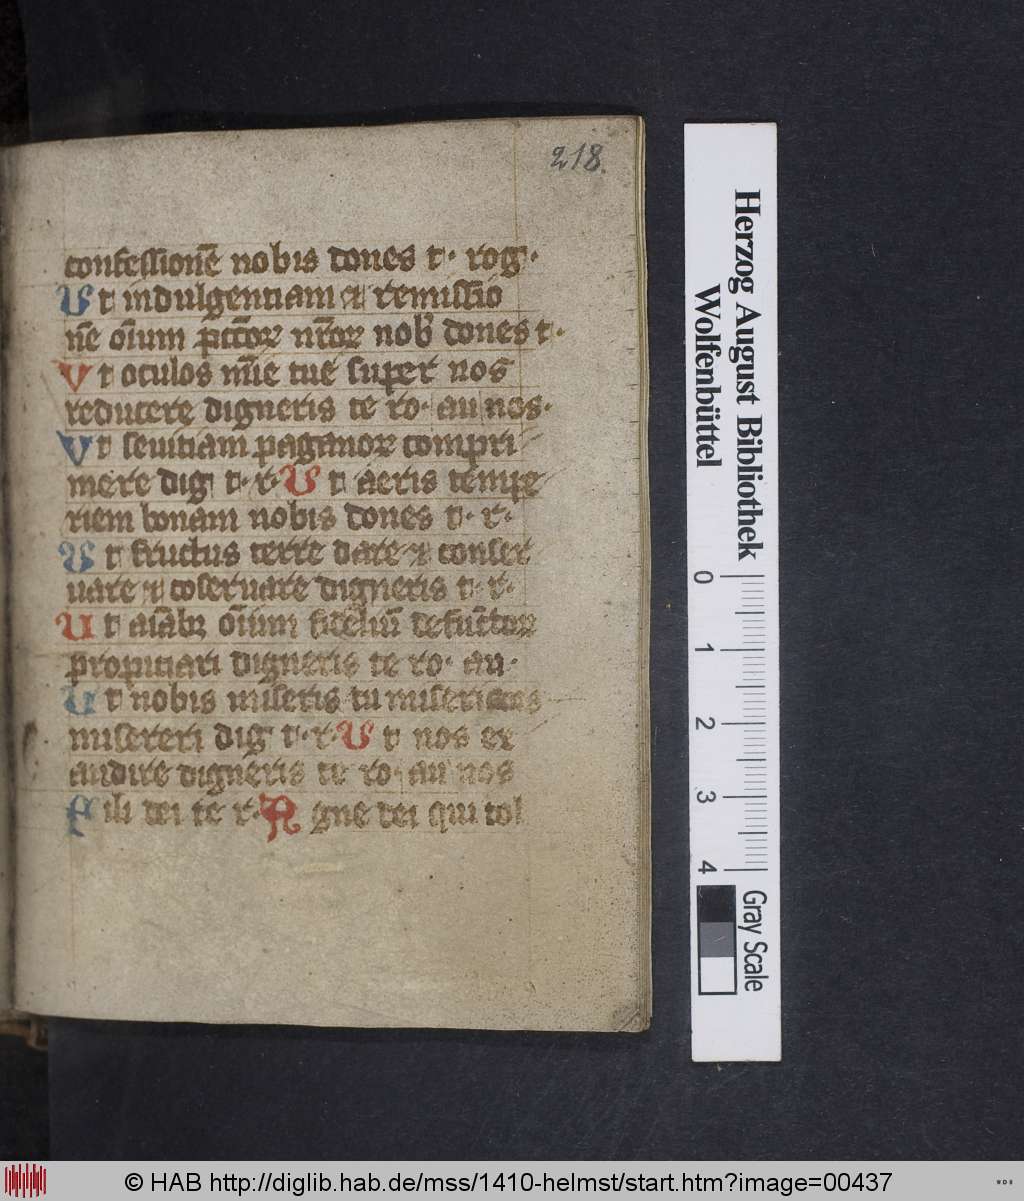 218.
confessionē nobis dones t· rog·
Ut indulgentiam et remissio
nē oīum pctōꝝ nr̄oꝝ nob̄ dones t·
Vt oculos mīe tue super nos
reducere digneris te ro· au nos·
Vt seuitiam paganoꝝ compri
mere dig t· r· Ut aeris tempe
riem bonam nobis dones t· r·
Ut fructus terre dare et conser
uare et cōseruare digneris t· r·
Ut aīabꝫ oīum fideliū defūctoꝝ
propitiari digneris te ro· au·
Ut nobis miseris tu misericors
misereri dig t· r· Ut nos ex
audire digneris te ro· au nos
Fili dei te r· Agne dei qui tol
Herzog August Bibliothek
Wolfenbüttel
0 1 2 3 4
Gray Scale
© HAB http://diglib.hab.de/mss/1410-helmst/start.htm?image=00437